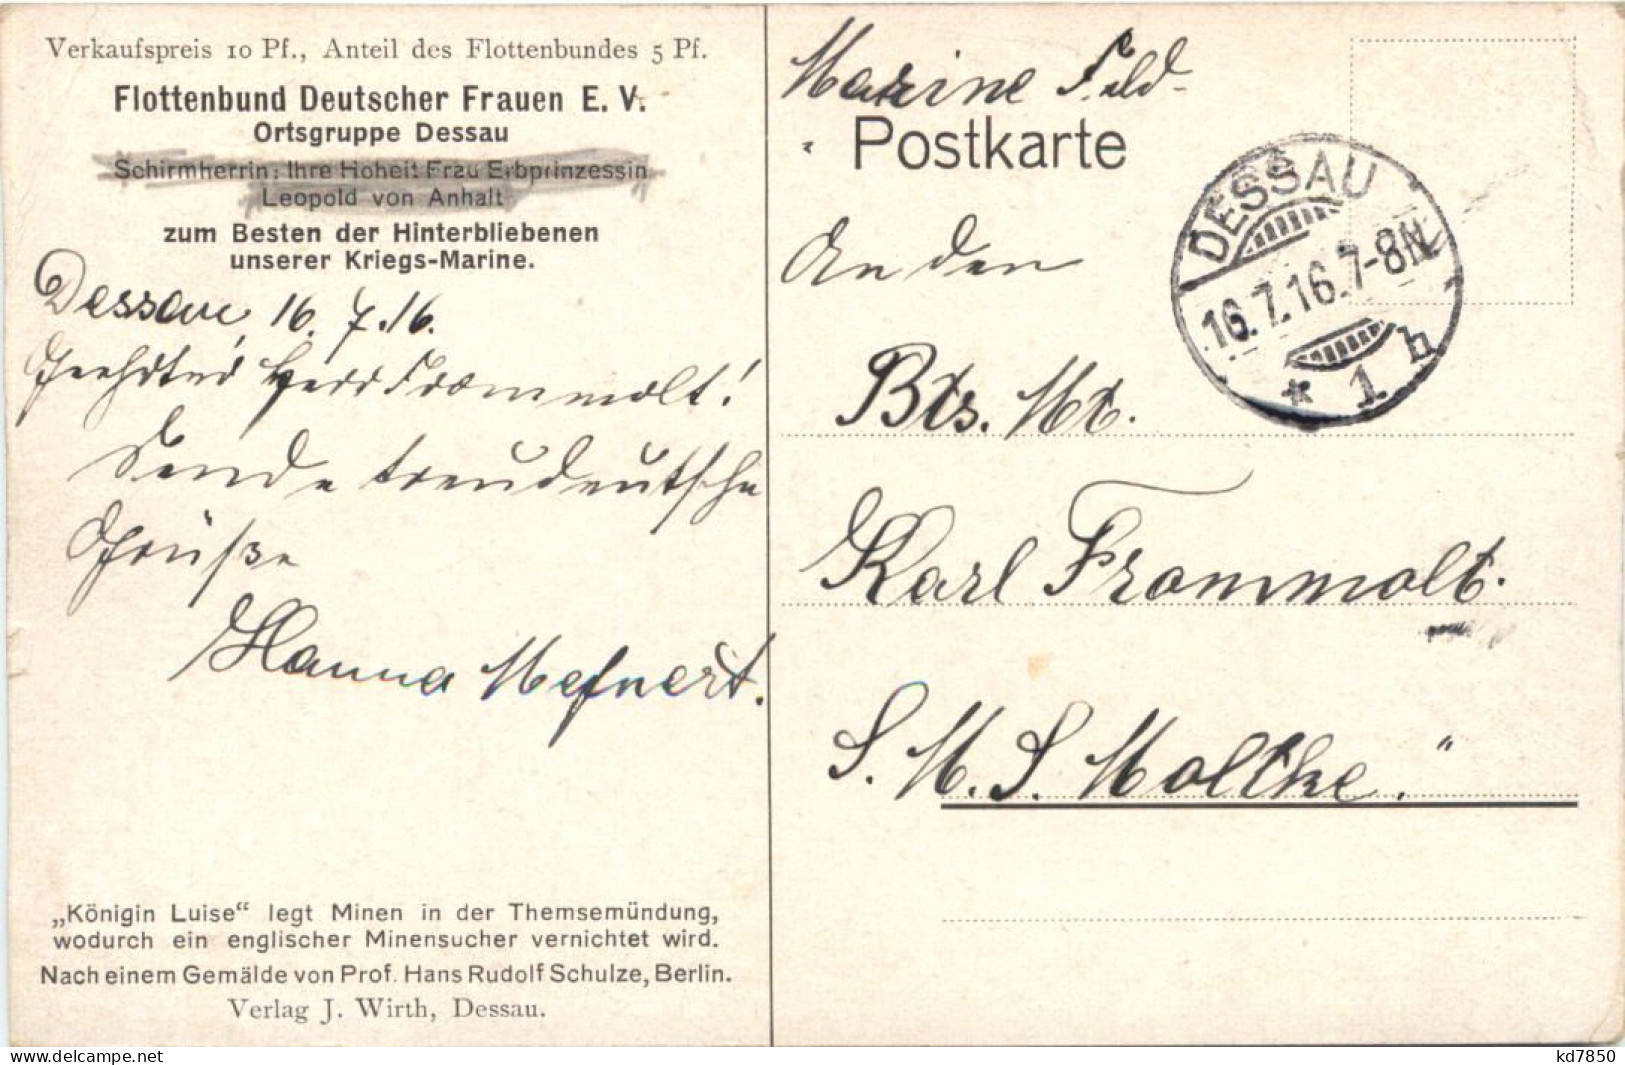 Verkaufspreis 10 Pf., Anteil des Flottenbundes 5 Pf.
Flottenbund Deutscher Frauen E. V.
Ortsgruppe Dessau
Schirmherrin: Ihre Hoheit Frau Erbprinzessin
Leopold von Anhalt
zum Besten der Hinterbliebenen
unserer Kriegs-Marine.
Dessau, 16. 7. 16.
Geehrter Herr Frommolt!
Sende treudeutsche
Grüße
Hanna
„Königin Luise“ legt Minen in der Themsemündung,
wodurch ein englischer Minensucher vernichtet wird.
Nach einem Gemälde von Prof. Hans Rudolf Schulze, Berlin.
Verlag J. Wirth, Dessau.
Marine Feld-
Postkarte
An den
Bts. Mt.
Karl Frommolt.
S. M. S. Moltke."
DESSAU
16.7.16.7-8N
* 1 h
kd7850
https://www.delcampe.net